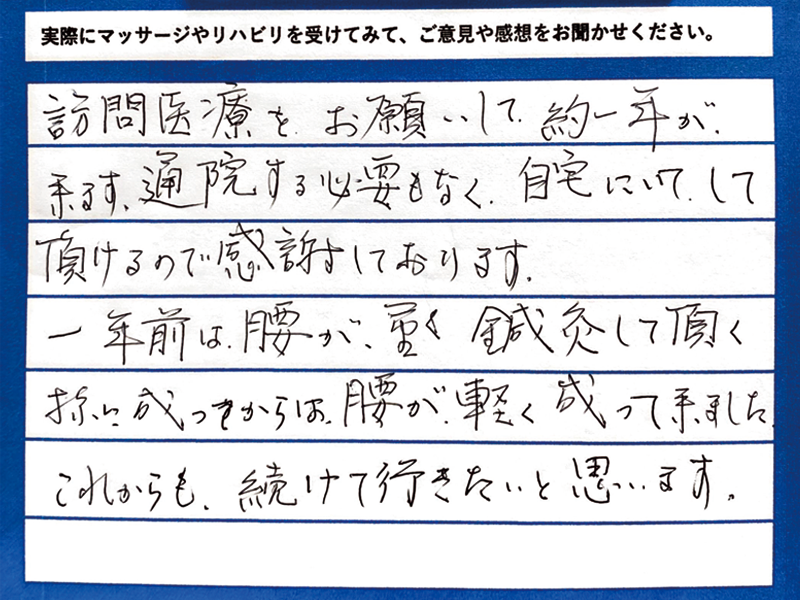 実際にマッサージやリハビリを受けてみて、ご意見や感想をお聞かせください。
訪問医療を、お願いして、約一年が、
来ます、通院する必要もなく、自宅にいて、して
頂けるので感謝しております。
一年前は、腰が、重く 鍼灸して頂く
様に成ってからは、腰が、軽く 成って来ました、
これからも、続けて行きたいと思います。